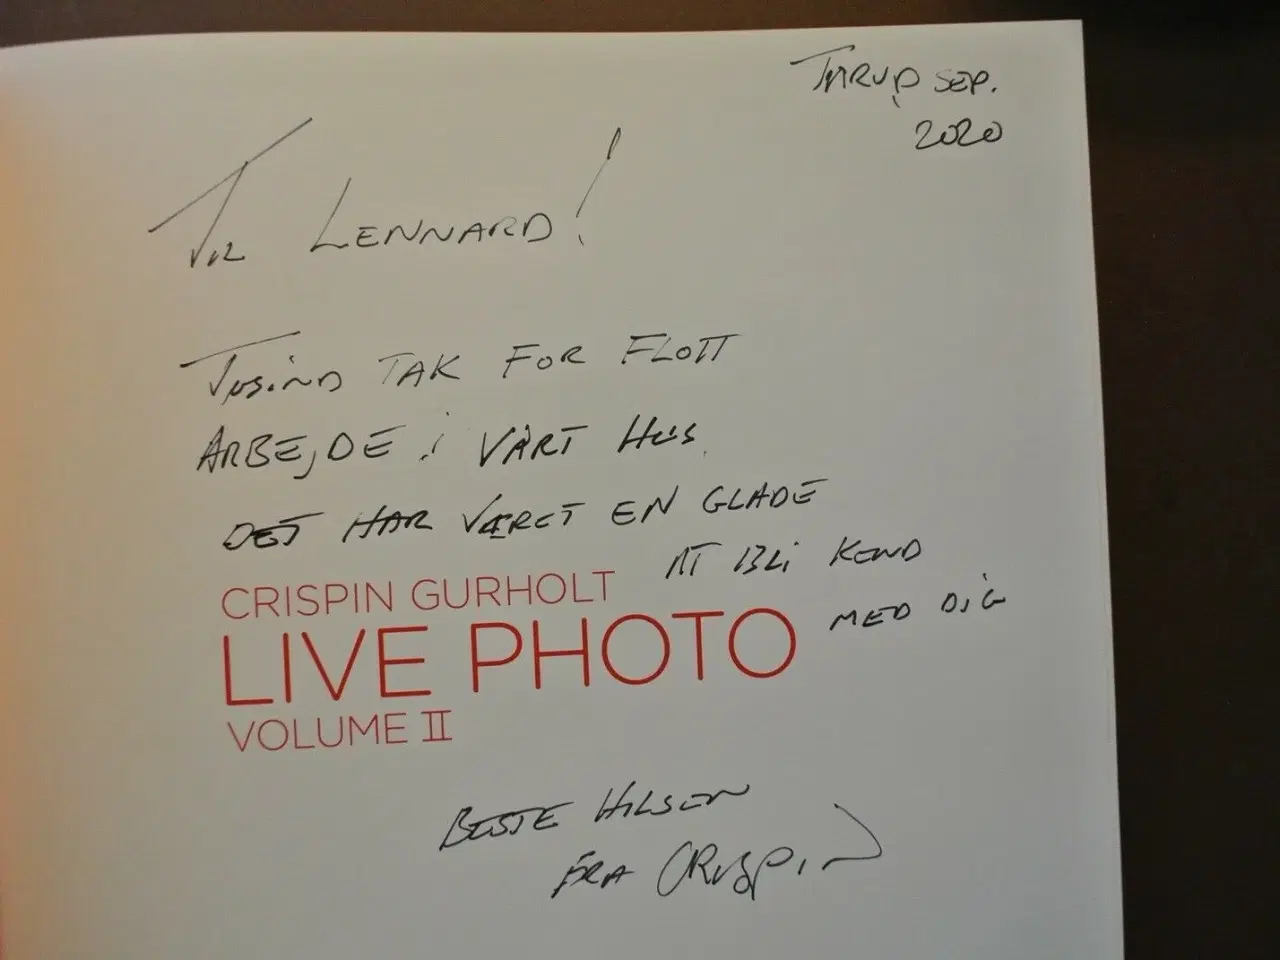 TÅRUP SEP.
2020
TIL LENNARD!
TUSIND TAK FOR FLOTT
ARBEJDE i VÅRT HUS.
DET HAR VÆRET EN GLADE
AT BLI KEND
MED DIG
CRISPIN GURHOLT
LIVE PHOTO
VOLUME II
BESTE HILSEN
FRA CRISPIN